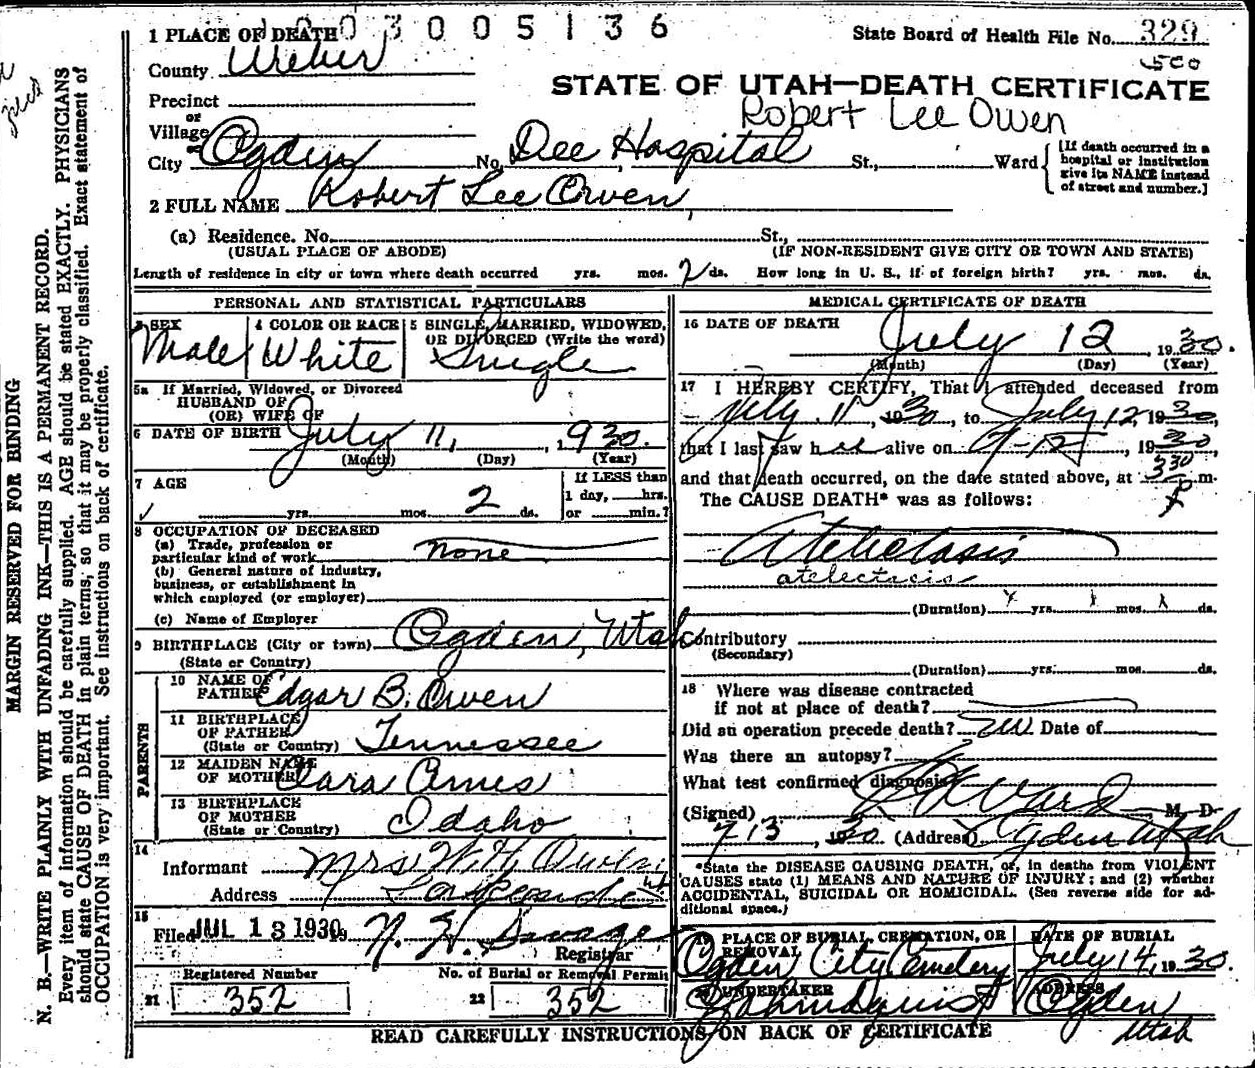 1 PLACE OF DEATH 03005136 State Board of Health File No. 329
500
County Weber
STATE OF UTAH—DEATH CERTIFICATE
Precinct
Robert Lee Owen
or
Village
or
City Ogden No. Dee Hospital St., Ward
[If death occurred in a hospital or institution give its NAME instead of street and number.]
2 FULL NAME Robert Lee Owen
(a) Residence. No. St.,
(USUAL PLACE OF ABODE) (IF NON-RESIDENT GIVE CITY OR TOWN AND STATE)
Length of residence in city or town where death occurred yrs. mos. 2 ds. How long in U. S., if of foreign birth? yrs. mos. ds.
PERSONAL AND STATISTICAL PARTICULARS
3 SEX Male
4 COLOR OR RACE White
5 SINGLE, MARRIED, WIDOWED, OR DIVORCED (Write the word) Single
5a If Married, Widowed, or Divorced
HUSBAND OF
(OR) WIFE OF
6 DATE OF BIRTH July 11, 1930.
(Month) (Day) (Year)
7 AGE yrs. mos. 2 ds.
If LESS than
1 day, hrs.
or min.?
8 OCCUPATION OF DECEASED
(a) Trade, profession or
particular kind of work none
(b) General nature of industry,
business, or establishment in
which employed (or employer)
(c) Name of Employer
9 BIRTHPLACE (City or town) Ogden, Utah
(State or Country)
PARENTS
10 NAME OF
FATHER Edgar B. Owen
11 BIRTHPLACE
OF FATHER
(State or Country) Tennessee
12 MAIDEN NAME
OF MOTHER Clara Ames
13 BIRTHPLACE
OF MOTHER
(State or Country) Idaho
14
Informant Mrs W. H. Owen
Address Lakeside Ut
15
Filed JUL 13 1930 19 N. H. Savage
Registrar
Registered Number No. of Burial or Removal Permit
21 352 22 352
MEDICAL CERTIFICATE OF DEATH
16 DATE OF DEATH July 12, 1930.
(Month) (Day) (Year)
17 I HEREBY CERTIFY, That I attended deceased from
July 11, 1930, to July 12, 1930,
that I last saw h alive on 7-12, 1930,
and that death occurred, on the date stated above, at 330 P m.
The CAUSE DEATH* was as follows:
Atelectasis
atelectacis
(Duration) yrs. mos. ds.
Contributory
(Secondary)
(Duration) yrs. mos. ds.
18 Where was disease contracted
if not at place of death?
Did an operation precede death? no Date of
Was there an autopsy?
What test confirmed diagnosis?
(Signed) Ward M. D.
7 13, 1930 (Address) Ogden Utah
*State the DISEASE CAUSING DEATH, or, in deaths from VIOLENT
CAUSES state (1) MEANS AND NATURE OF INJURY; and (2) whether
ACCIDENTAL, SUICIDAL OR HOMICIDAL. (See reverse side for ad-
ditional space.)
19 PLACE OF BURIAL, CREMATION, OR REMOVAL
Ogden City Cemetery
DATE OF BURIAL
July 14, 1930.
20 UNDERTAKER
ADDRESS
Ogden
Utah
READ CAREFULLY INSTRUCTIONS ON BACK OF CERTIFICATE
MARGIN RESERVED FOR BINDING
N. B.—WRITE PLAINLY WITH UNFADING INK—THIS IS A PERMANENT RECORD.
Every item of information should be carefully supplied. AGE should be stated EXACTLY. PHYSICIANS
should state CAUSE OF DEATH in plain terms, so that it may be properly classified. Exact statement of
OCCUPATION is very important. See instructions on back of certificate.